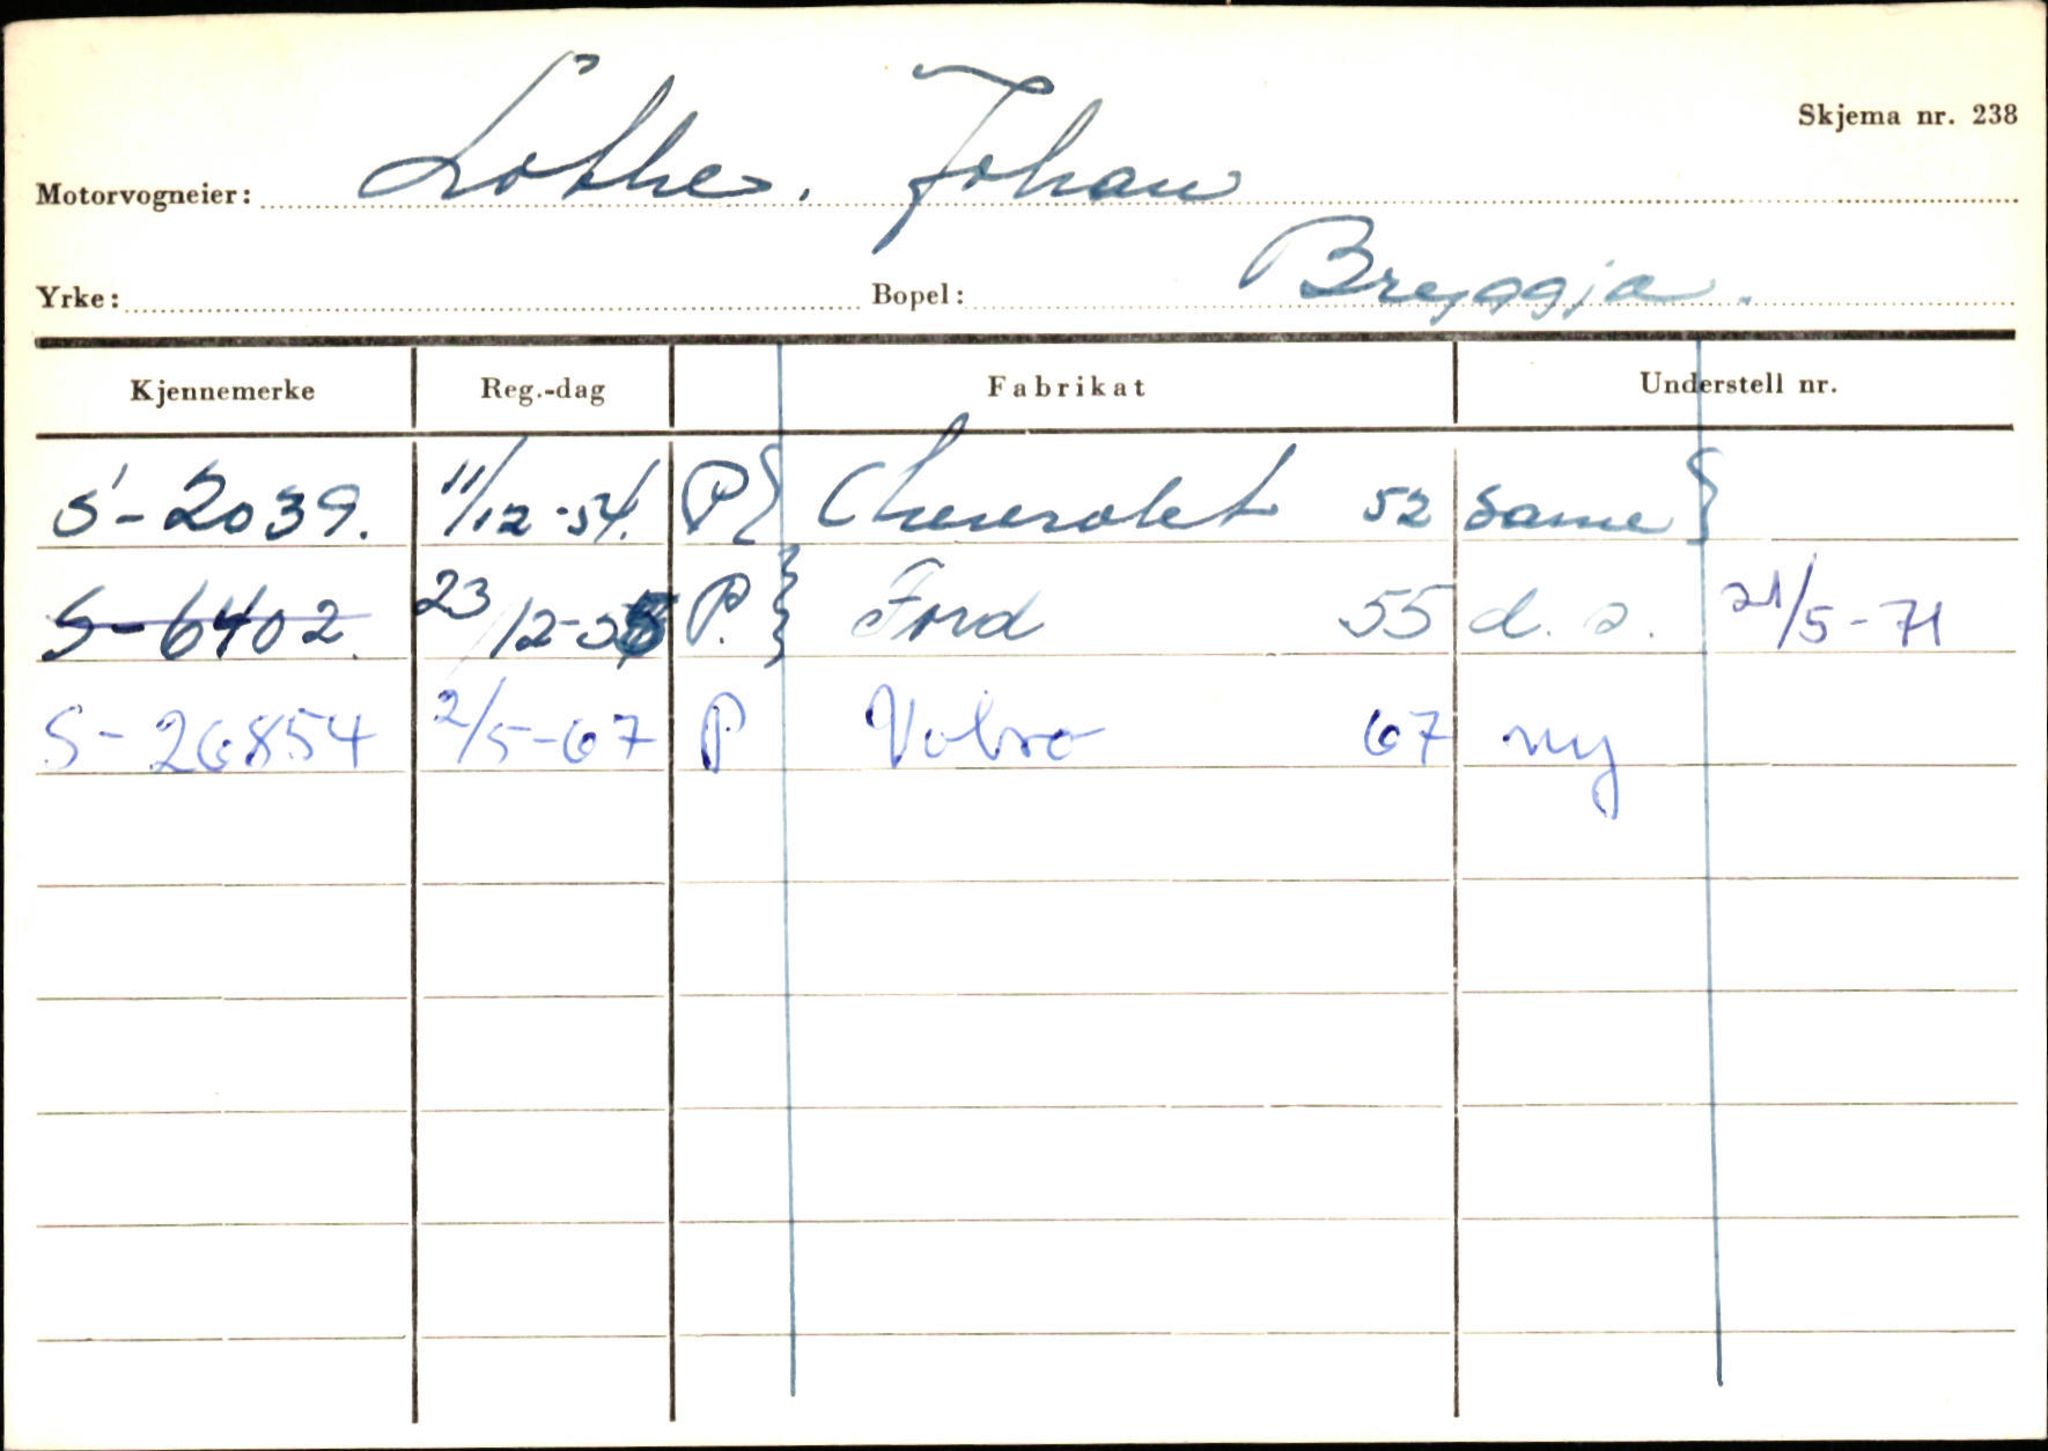 Skjema nr. 238
Motorvogneier: Løthe. Johan
Yrke: Bopel: Bryggja.
Kjennemerke Reg.-dag Fabrikat Understell nr.
S-2039. 11/12-54. P } Chevrolet 52 same }
S-6402. 23/12-55 P. } Ford 55 d. s. 21/5-71
S-26854 2/5-67 P Volvo 67 ny